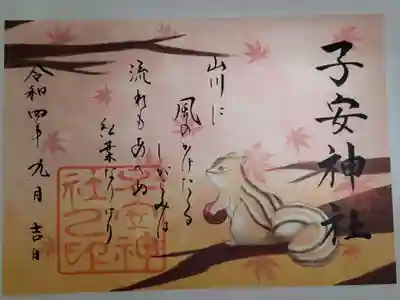 子安神社
山川に
風のかけたる
しがらみは
流れもあへぬ
紅葉なりけり
令和四年 九月 吉日
子安神
社之印